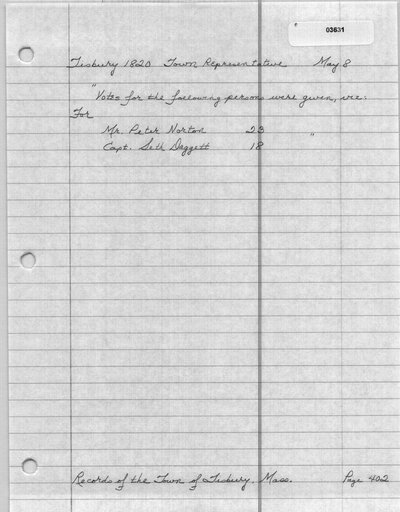 03631
Tisbury 1820 Town Representative May 8
"Votes for the following persons were given, viz:
For
Mr. Peter Norton 23 "
Capt. Seth Daggett 18
Records of the Town of Tisbury, Mass. Page 402